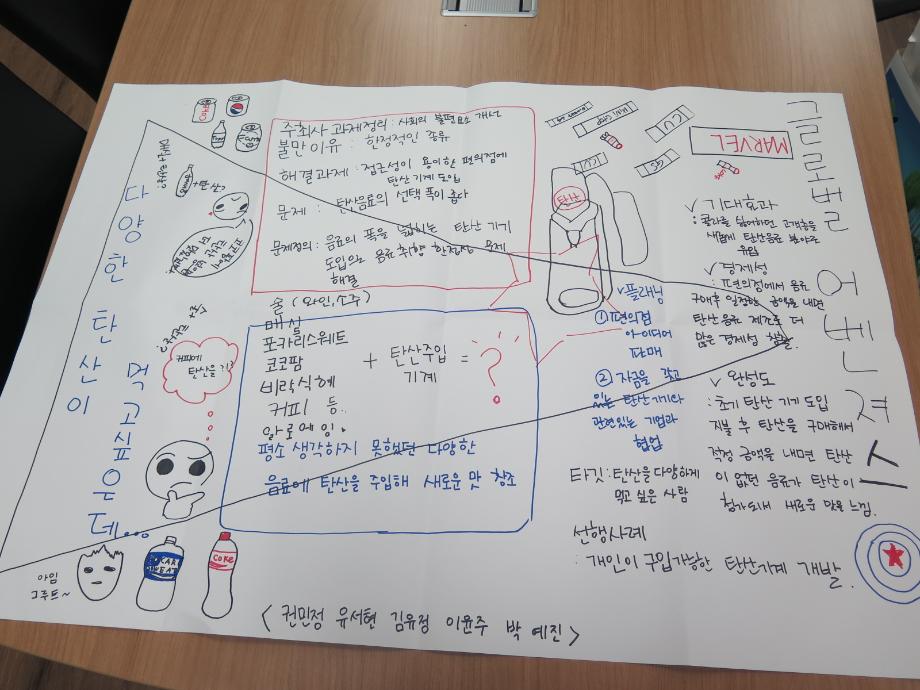 글로벌 어벤져스
MARVEL
다양한 탄산이
먹고싶은데...
주최사 과제정리 : 사회의 불편요소 개선
불만 이유 : 한정적인 종류
해결과제 : 접근성이 용이한 편의점에
탄산기계 도입
문제 : 탄산음료의 선택 폭이 좁다
문제정의 : 음료의 폭을 넓히는 탄산 기기
도입으로 음료 취향 한정성 문제
해결
술 (와인, 소주)
매실
포카리스웨트
코코팜
비락식혜
커피 등..
알로에잉.
+ 탄산주입
기계
= ?
평소 생각하지 못했던 다양한
음료에 탄산을 주입해 새로운 맛 창조
커피에
탄산을?
Coke
CU
MINI STOP
CU
GS
탄산
✓ 플래닝
① 편의점
아이디어
판매
② 자금을 갖고
있는 탄산기기와
관련있는 기업과
협업
타깃 : 탄산을 다양하게
먹고 싶은 사람
선행사례
: 개인이 구입가능한 탄산기계 개발.
✓ 기대효과
: 콜라를 싫어하던 고객층을
새롭게 탄산음료 분야로
유입
✓ 경제성
: 편의점에서 음료
구매후 일정한 금액을 내면
탄산음료 제조로 더
많은 경제성 창출.
✓ 완성도
: 초기 탄산 기기 도입
지불 후 탄산을 구매해서
적정 금액을 내면 탄산
이 없던 음료가 탄산이
첨가돼서 새로운 맛을 느낌.
아임
그루트~
Coke
< 권민정 유서현 김유정 이윤주 박예진 >